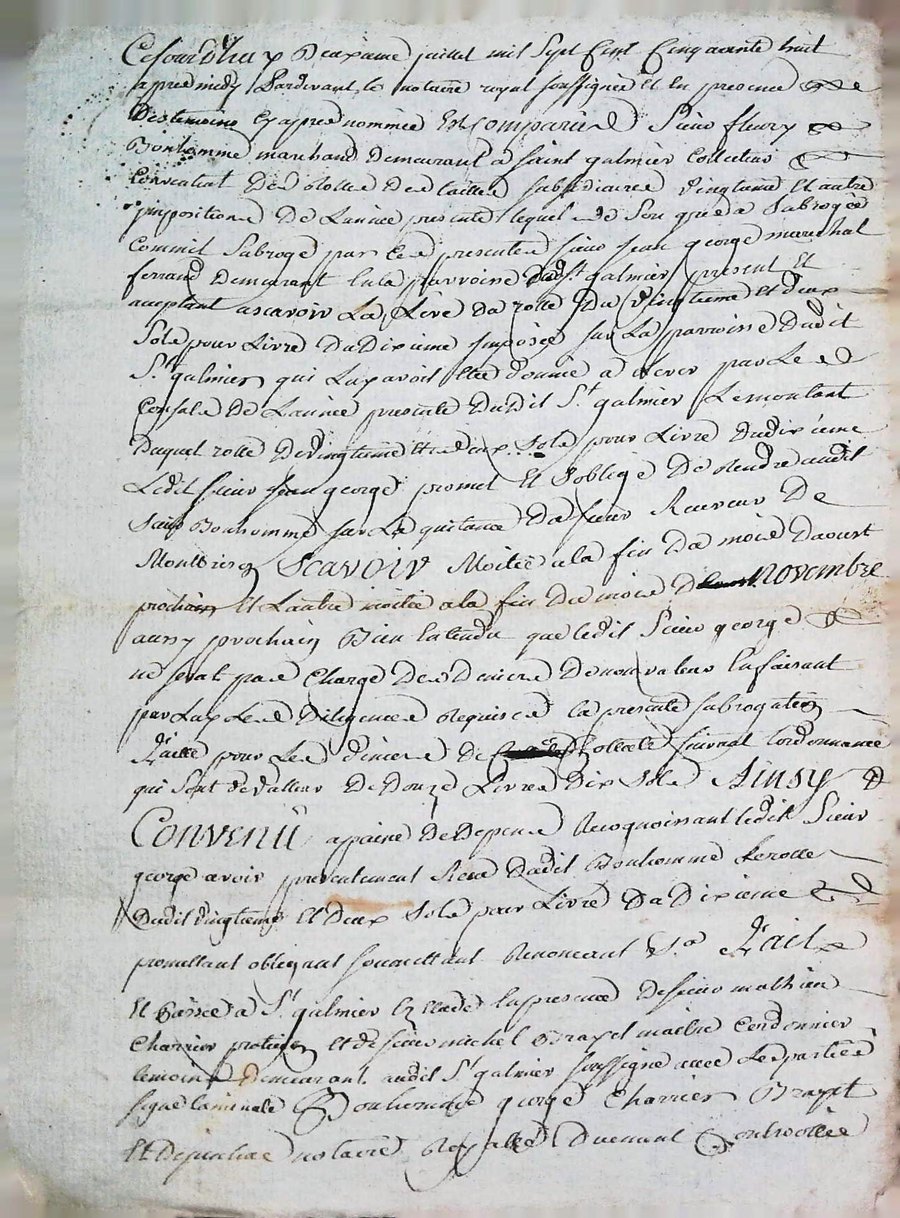 Cejourdhuy deuxieme juillet mil sept cent cinquante huit
apres midy pardevant le notaire royal soussigné et en presence
des temoins cy apres nommés est comparu Sieur fleury
Bonhomme marchand demeurant a Saint galmier collecteur
des rolles des tailles subsidiaires vingtieme et autre
impositions de lannee presente lequel de son gré a subrogé
commit subrogé par ces presentes sieur jean george marechal
ferrand demeurant en la parroisse dudt St galmier present et
acceptant ascavoir La Levé du rolle du vingtieme et deux
Sols pour Livre du dixieme imposée sur La parroisse dudit
St galmier qui luy avoit été donné a lever par Les
Consuls de Lannee presente dudit St galmier Le montant
duquel rolle de vingtieme et deux Sols pour Livre du dixieme
Ledit sieur jean george promet et soblige de rendre audit
Sieur Bonhomme sur La quitance du sieur Receveur de
Montbrison Scavoir Moitié a la fin du mois daoust
prochain et Lautre moitié a la fin du mois de novembre
aussy prochain Bien entendu que ledit Sieur george
ne serat pas chargé des deniers de non valeur en faisant
par Luy Les diligences requises la presente subrogation
faitte pour Les deniers de collecte journal lordonnance
qui sont de valleur de douze Livres dix Sols Ainsy
Convenu a paine de depens Recognoissant ledit Sieur
george avoir presentement Receu dudit Bonhomme le rolle
dudit vingtieme et deux Sols pour Livre du dixieme
promettant obligeant soumettant Renoncant &a fait
et passé a St galmier Ez Etude en presence de sieur mathieu
Charrier praticien et de sieur michel Brazet maitre cordonnier
temoins demeurant audit St galmier soussigné avec Les parties
signé la minute Bonhomme george Charrier Brazet
et notaire Royal duement Controollée